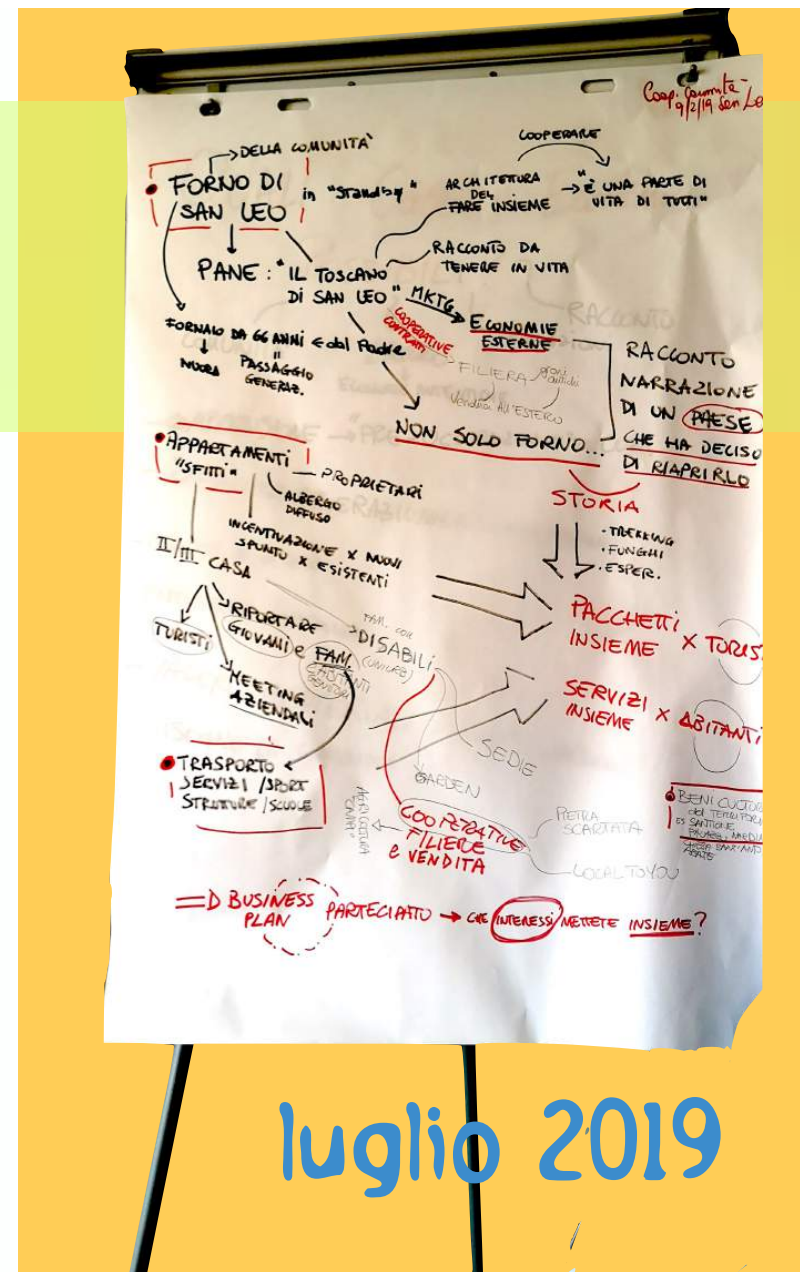 Coop. Comunità -
9/2/19 San Le
COOPERARE
DELLA COMUNITA'
FORNO DI
SAN LEO
in "Standby"
ARCHITETTURA
DEL
FARE INSIEME
"È UNA PARTE DI
VITA DI TUTTI"
RACCONTO DA
TENERE IN VITA
PANE: "IL TOSCANO
DI SAN LEO"
MKTG
ECONOMIE
ESTERNE
COOPERATIVE
CONTRATTI
FILIERA
grani
antichi
Vendita All'ESTERO
FORNAIO DA 66 ANNI e dal Padre
NUORA
PASSAGGIO
GENERAZ.
NON SOLO FORNO...
RACCONTO
NARRAZIONE
DI UN PAESE
CHE HA DECISO
DI RIAPRIRLO
STORIA
TREKKING
FUNGHI
ESPER.
APPARTAMENTI
"SFITTI"
PROPRIETARI
ALBERGO
DIFFUSO
INCENTIVAZIONE X NUOVI
SPUNTO X ESISTENTI
II/III CASA
TURISTI
RIPORTARE
GIOVANI e FAM.
MEETING
AZIENDALI
FAM. CON
DISABILI
PACCHETTI
INSIEME X TURIST
SERVIZI
INSIEME X ABITANTI
SEDIE
GARDEN
TRASPORTO
SERVIZI /SPORT
STRUTTURE /SCUOLE
AGRICOLTURA
COOPERATIVE
FILIERE
e VENDITA
PIETRA
SCARTATA
LOCALTOYOU
BENI CULTUR
del TERRITORI
=D BUSINESS
PLAN
PARTECIPATO → CHE INTERESSI METTETE INSIEME?
luglio 2019